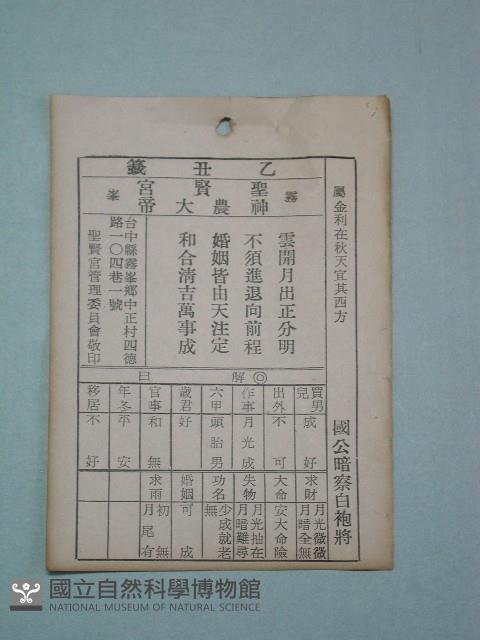 乙丑籤
霧峯
聖賢宮
神農大帝
屬金利在秋天宜其西方
國公暗察白袍將
雲開月出正分明
不須進退向前程
婚姻皆由天注定
和合清吉萬事成
台中縣霧峯鄉中正村四德
路一〇四巷一號
聖賢宮管理委員會敬印
◎解曰
買男兒 成好
出外 不可
作事 月光成
六甲 頭胎男
歲君 好
官事 和無
年冬 平安
移居 不好
求財 月光微微 月暗全無
大命 安大命險
失物 月光抽在 月暗難尋
功名 少成就老無
婚姻 可成
求雨 初無 月尾有
國立自然科學博物館
NATIONAL MUSEUM OF NATURAL SCIENCE